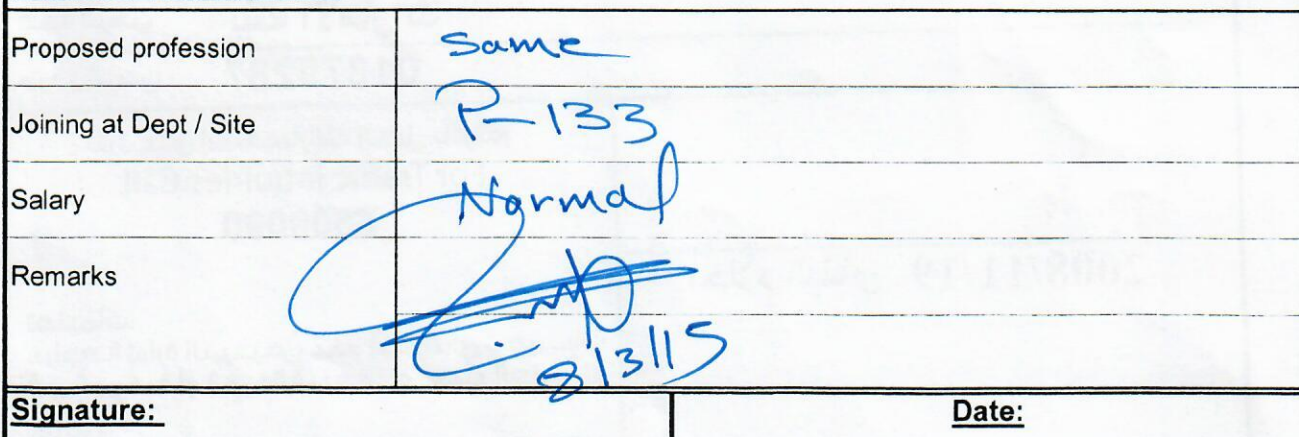 Proposed profession Same
Joining at Dept / Site P-133
Salary Normal
Remarks
8/3/15
Signature: Date: